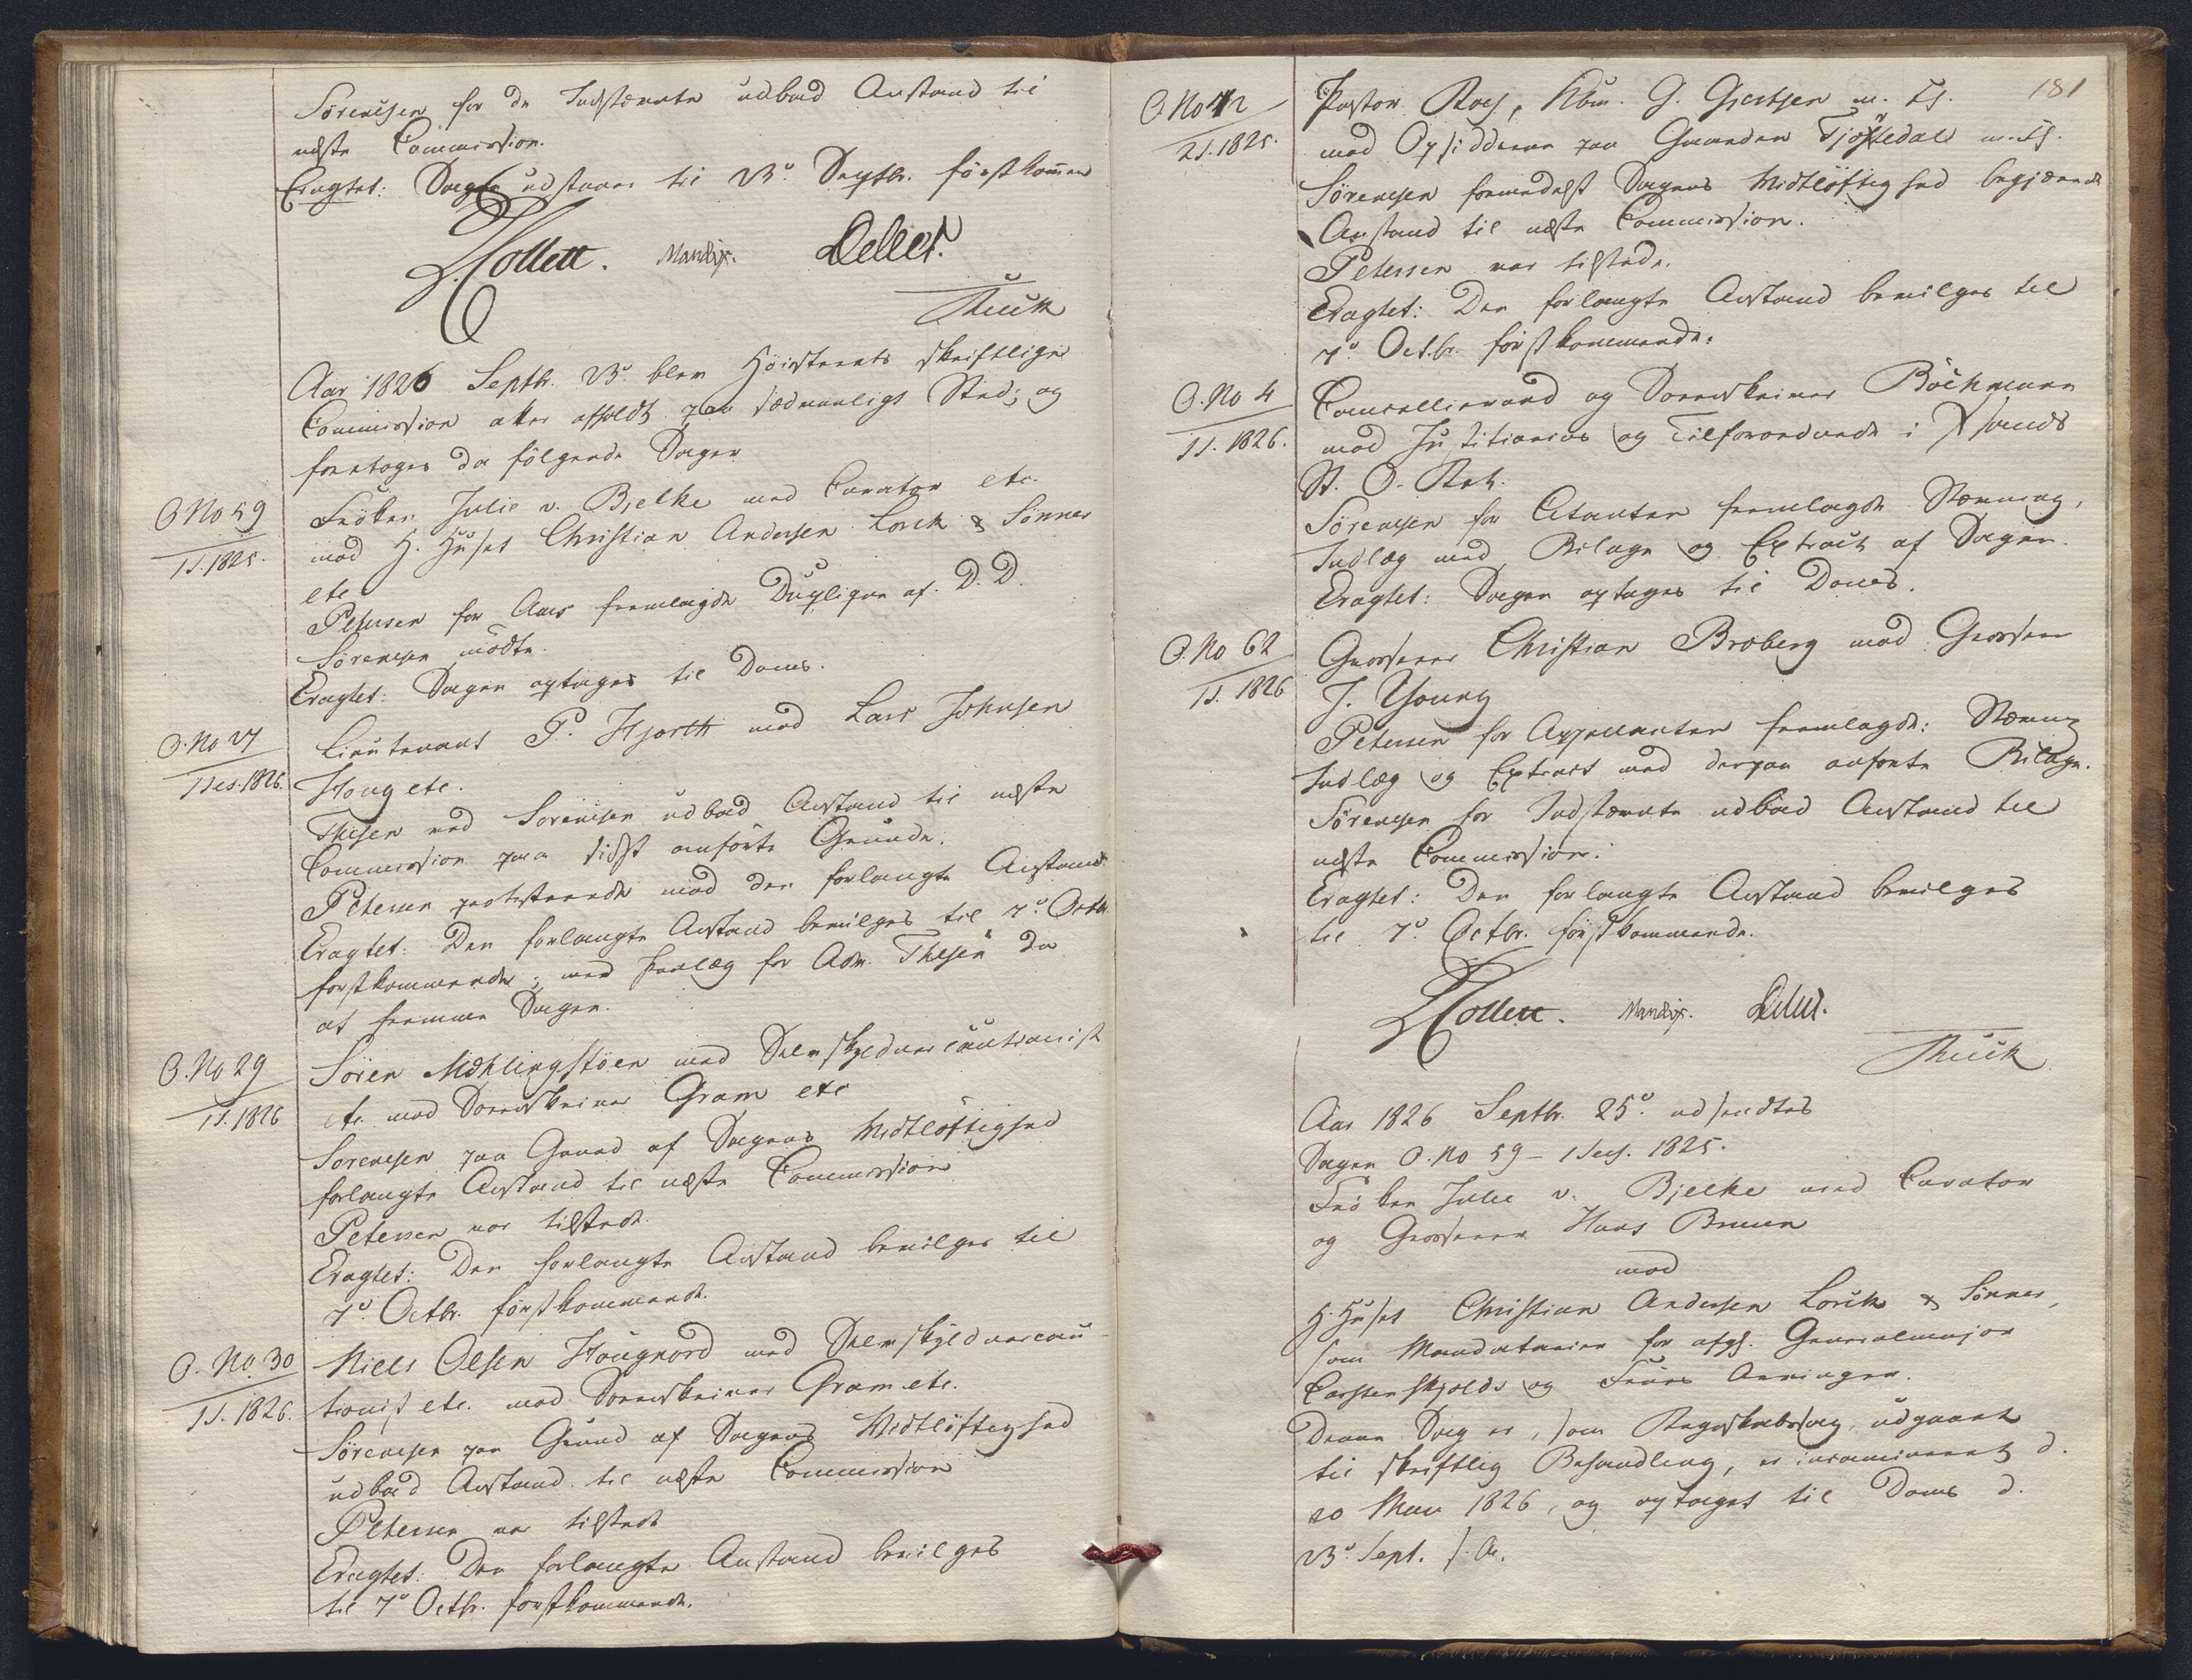 Sörensen for de Indstævnte udbad Anstand til
næste Commission.
Eragtet: Sagen udstaaer til 23de Septbr. förstkommen
JCollett. Mandix. Debes.
Munk
Aar 1826 Septbr. 23de blev Höiesterets skriftlige
Commission atter afholdt paa sædvanligt Sted; og
foretoges da fölgende Sager
O No 59
1 S. 1825.
Fröken Julie v. Bjelke med Curator etc.
mod H. Huset Christian Andersen Lorck & Sönner
etc
Petersen for Aars fremlagde Duplique af D. D.
Sörensen mödte.
Eragtet: Sagen optages til Doms.
O. No 27
1 Ses. 1826.
Lieutenant P. Hjorth mod Lars Johnsen
Houg etc.
Thesen ved Sörensen udbad Anstand til næste
Commission paa sidst anförte Grunde.
Petersen protesterede mod den forlangte Anstand
Eragtet: Den forlangte Anstand bevilges til 7de Octbr.
förstkommende; med Paalæg for Adv. Thesen da
at fremme Sagen.
O. No 29
1 S. 1826
Sören Mæhlingstöen med Selvskyldnercautionist
etc mod Sorenskriver Gram etc
Sörensen paa Grund af Sagens Vidtlöftighed
forlangte Anstand til næste Commission
Petersen var tilstede.
Eragtet: Den forlangte Anstand bevilges til
7de Octbr. förstkommende.
O. No 30
1 S. 1826.
Niels Olsen Hougnord med Selvskyldnercau-
tionist etc. mod Sorenskriver Gram etc.
Sörensen paa Grund af Sagens Vidtlöftighed
udbad Anstand til næste Commission
Petersen var tilstede
Eragtet: Den forlangte Anstand bevilges
til 7de Octbr. förstkommende.
181
O. No 42
2 S. 1825.
Pastor Roes, Kbm. G. Gjertsen m. Fl.
mod Opsidderne paa Gaarden Fjostedal m. Fl.
Sörensen formedelst Sagens Vidtlöftighed begjærede
Anstand til næste Commission.
Petersen var tilstede.
Eragtet: Den forlangte Anstand bevilges til
7de Oct.br. förstkommende.
O. No 4
1 S. 1826.
Cancellieraad og Sorenskriver Böckmann
mod Justitiarius og Tilforordnede i Xsands
St. O. Ret.
Sörensen for Citanten fremlagde Stævning,
Indlæg med Bilage og Extract af Sagen.
Eragtet: Sagen optages til Doms.
O. No 62
1 S. 1826
Grosserer Christian Broberg mod Grosserer
J. Young
Petersen for Appellanten fremlagde: Stævng
Indlæg og Extract med derpaa anförte Bilage.
Sörensen for Indstævnte udbad Anstand til
næste Commission.
Eragtet: Den forlangte Anstand bevilges
til 7de Octbr. förstkommende.
JCollett. Mandix. Debes.
Munk
Aar 1826 Septbr. 25de. udsendtes
Sagen O. No 59 - 1 Sess. 1825.
Fröken Julie v. Bjelke med Curator
og Grosserer Hans Bruun
mod
H. Huset Christian Andersen Lorck & Sönner,
som Mandatarier for afg. Generalmajor
Carstenskjolds og Frues Arvinger.
Denne Sag er, som Regnskabssag, udgaaet
til skriftlig Behandling, er incamineret d.
20 Mai 1826, og optaget til Doms d.
23de Sept. s. A.